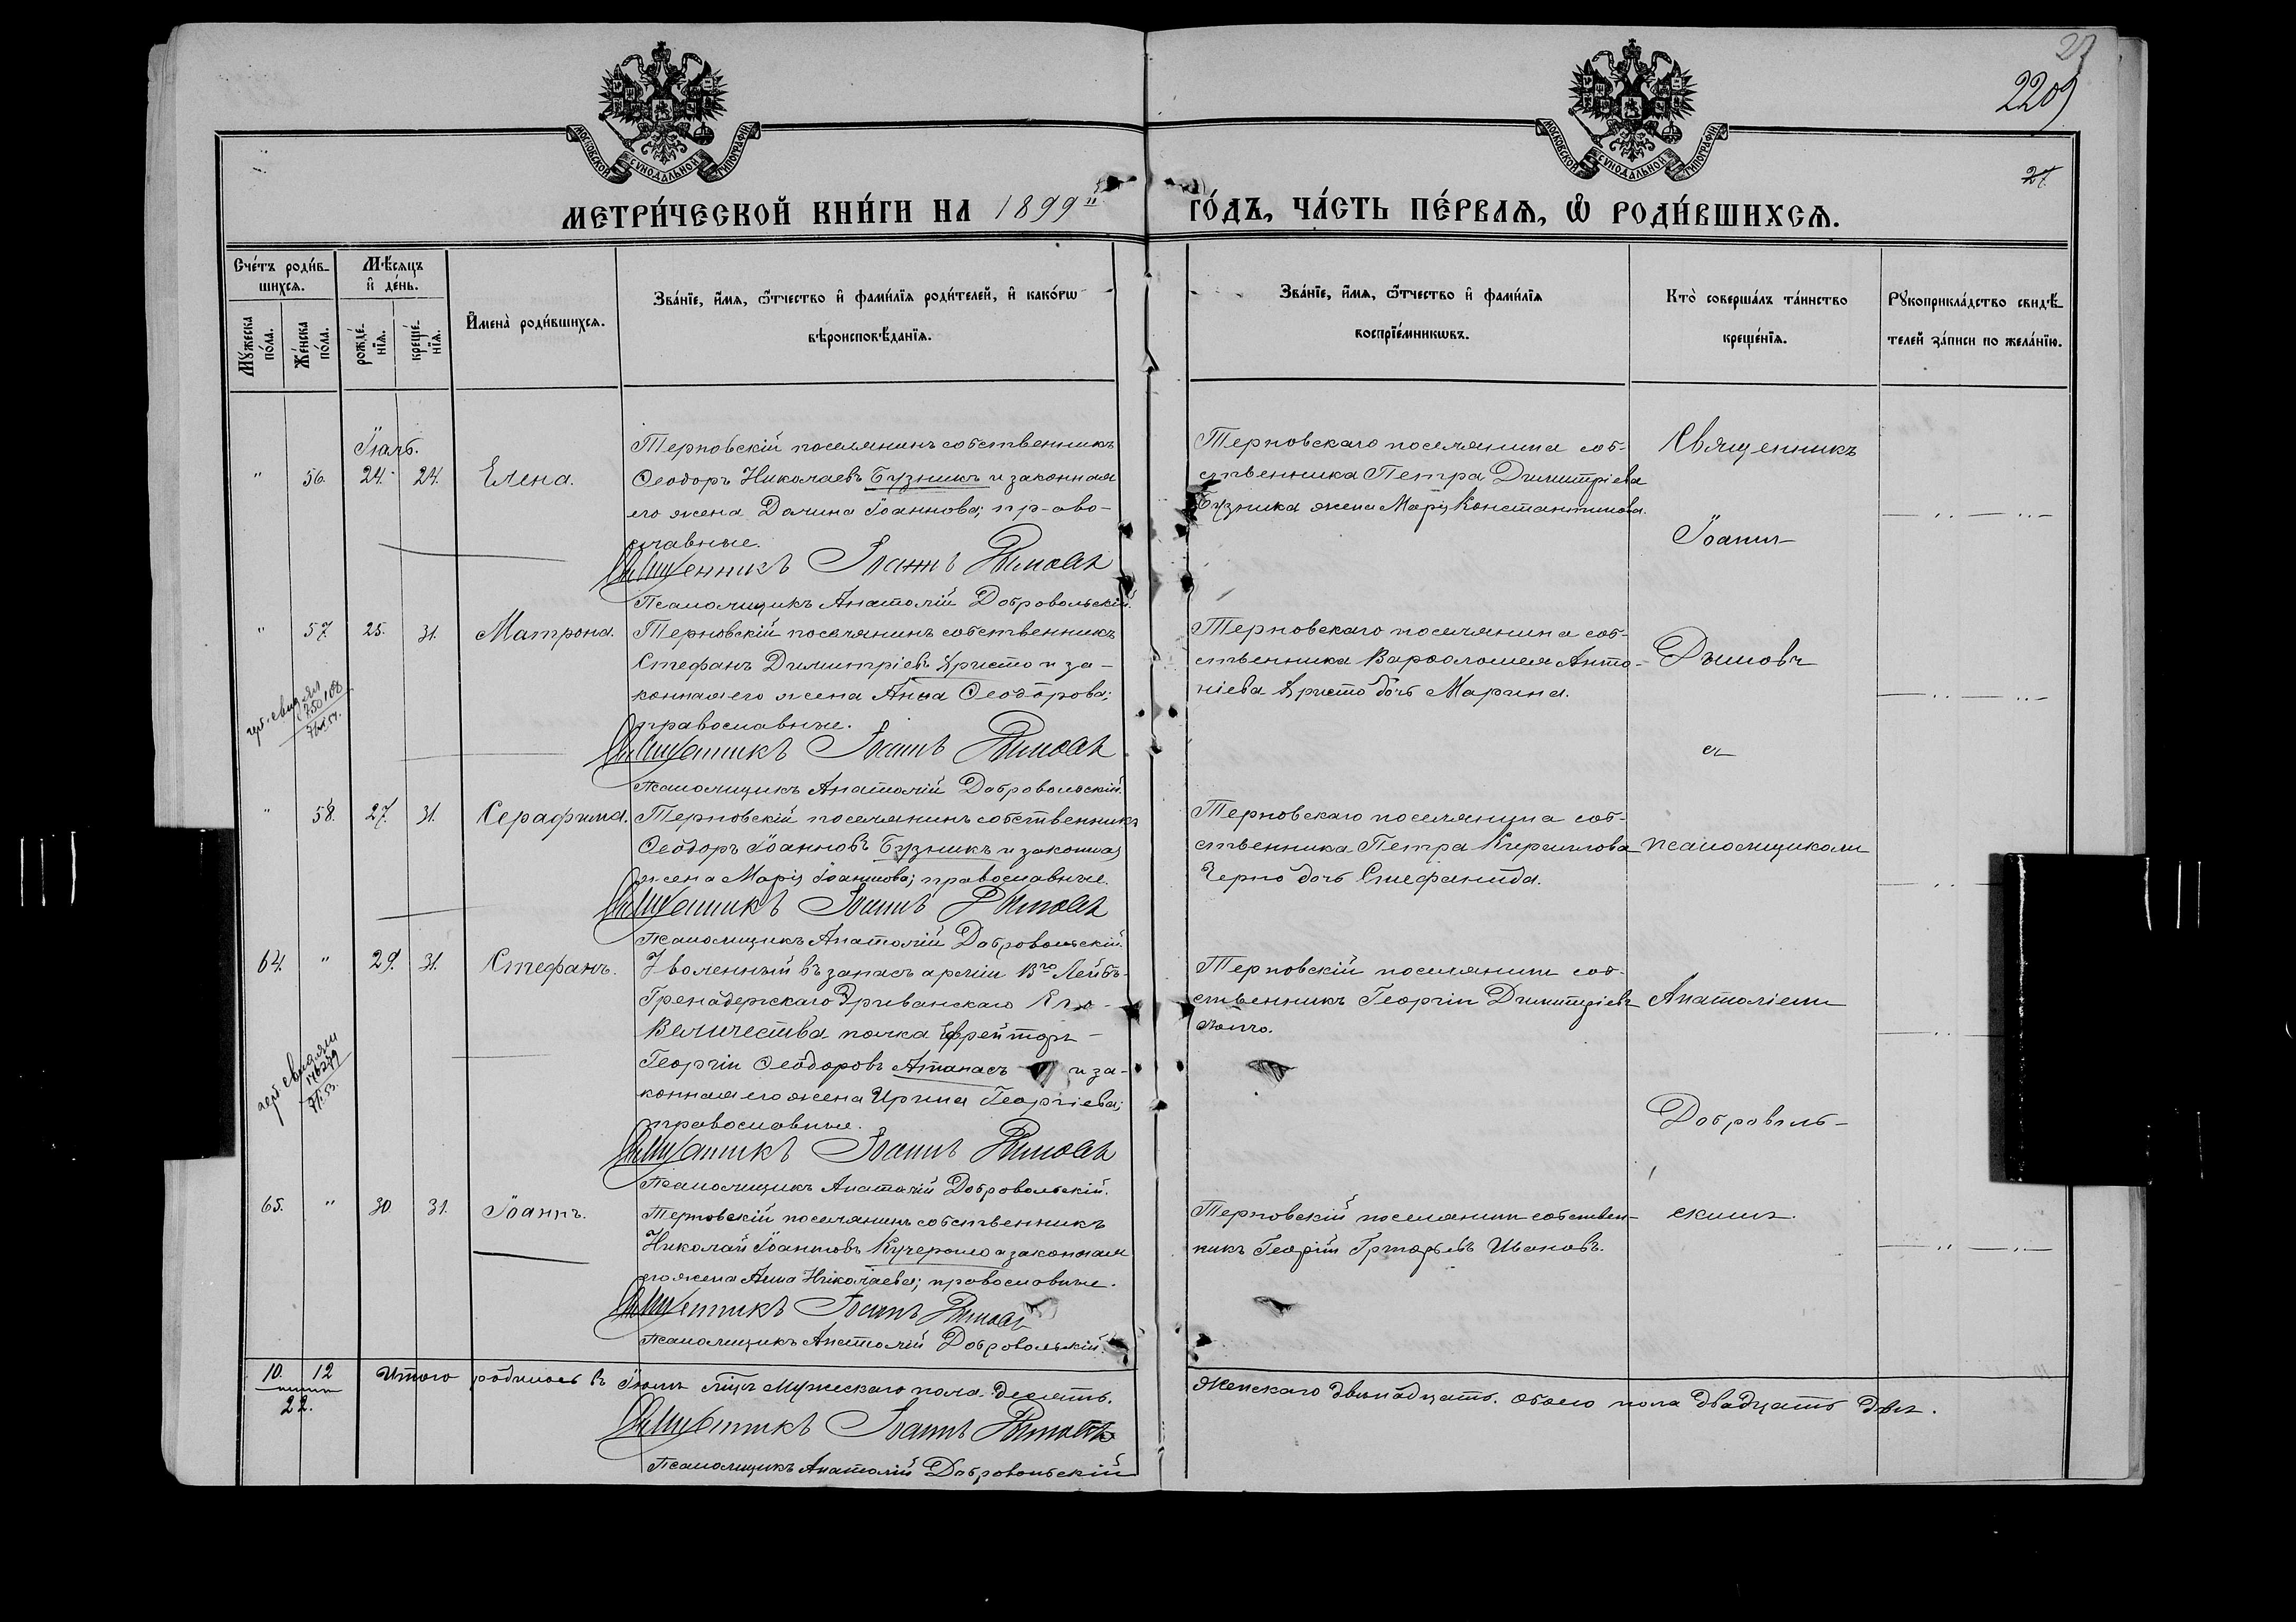 27
220
27.
МОСКОВСКОЙ СѴНОДАЛЬНОЙ ТИПОГРАФІИ
МОСКОВСКОЙ СѴНОДАЛЬНОЙ ТИПОГРАФІИ
МЕТРИ́ЧЕСКОЙ КНИ́ГИ НА 1899й ГО́ДЪ, ЧА́СТЬ ПЕ́РВАѦ, Ѡ҆ РОДИ́ВШИХСѦ.
Сче́тъ роди́в-
шихсѧ.
Мѣ́сѧцъ
и҆ де́нь.
Мꙋ́жеска
по́ла.
Же́нска
по́ла.
рожде́-
нїѧ.
креще́-
нїѧ.
И҆мена̀ роди́вшихсѧ.
Зва́нїе, и҆́мѧ, ѻ҆́тчество и҆ фами́лїѧ роди́телей, и҆ како́гѡ
вѣроисповѣ́данїѧ.
Зва́нїе, и҆́мѧ, ѻ҆́тчество и҆ фами́лїѧ
воспрїе́мникѡвъ.
Кто̀ соверша́лъ та́инство
креще́нїѧ.
Рꙋкоприкла́дство свидѣ́-
телей за́писи по жела́нїю.
Іюль.
" 56. 24. 24. Елена.
Терновскій поселянинъ собственникъ
Ѳеодоръ Николаевъ Бузникъ и законная
его жена Домна Іоаннова; право-
славные.
Священникъ Іоаннъ Дымовъ
Псаломщикъ Анатолій Добровольскій.
Терновскаго поселянина соб-
ственника Петра Димитріева
Бузника жена Марія Константинова.
Священникъ
Іоаннъ
" 57. 25. 31. Матрона.
Терновскій поселянинъ собственникъ
Стефанъ Димитріевъ Христо и за-
конная его жена Анна Ѳеодорова;
православные.
Священникъ Іоаннъ Дымовъ
Псаломщикъ Анатолій Добровольскій.
Терновскаго поселянина соб-
ственника Варѳоломея Анто-
ніева Христо дочь Марина.
Дымовъ
съ
" 58. 27. 31. Серафима.
Терновскій поселянинъ собственникъ
Ѳеодоръ Іоанновъ Бузникъ и законная
жена Марія Іоаннова; православные.
Священникъ Іоаннъ Дымовъ
Псаломщикъ Анатолій Добровольскій.
Терновскаго поселянина соб-
ственника Петра Кириллова
Черно дочь Стефанида.
псаломщикомъ
64. " 29. 31. Стефанъ.
Уволенный въ запасъ арміи 13го Лейбъ-
Гренадерскаго Эриванскаго Его
Величества полка Ефрейторъ
Георгій Ѳеодоровъ Атанасъ и за-
конная его жена Ирина Георгіева;
православные.
Священникъ Іоаннъ Дымовъ
Псаломщикъ Анатолій Добровольскій.
Терновскій поселянинъ соб-
ственникъ Георгій Димитріевъ
Анатоліемъ
Доброволь-
65. " 30. 31. Іоаннъ.
Терновскій поселянинъ собственникъ
Николай Іоанновъ и законная
его жена Анна Николаева; православные.
Священникъ Іоаннъ Дымовъ
Псаломщикъ Анатолій Добровольскій.
Терновскій поселянинъ собствен-
никъ Георгій Григорьевъ Ивановъ.
скимъ.
10. 12
22.
Итого родилось въ Іюлѣ лицъ мужескаго пола десять. Женскаго двѣнадцать. Обоего пола двадцать два.
Священникъ Іоаннъ Дымовъ
Псаломщикъ Анатолій Добровольскій